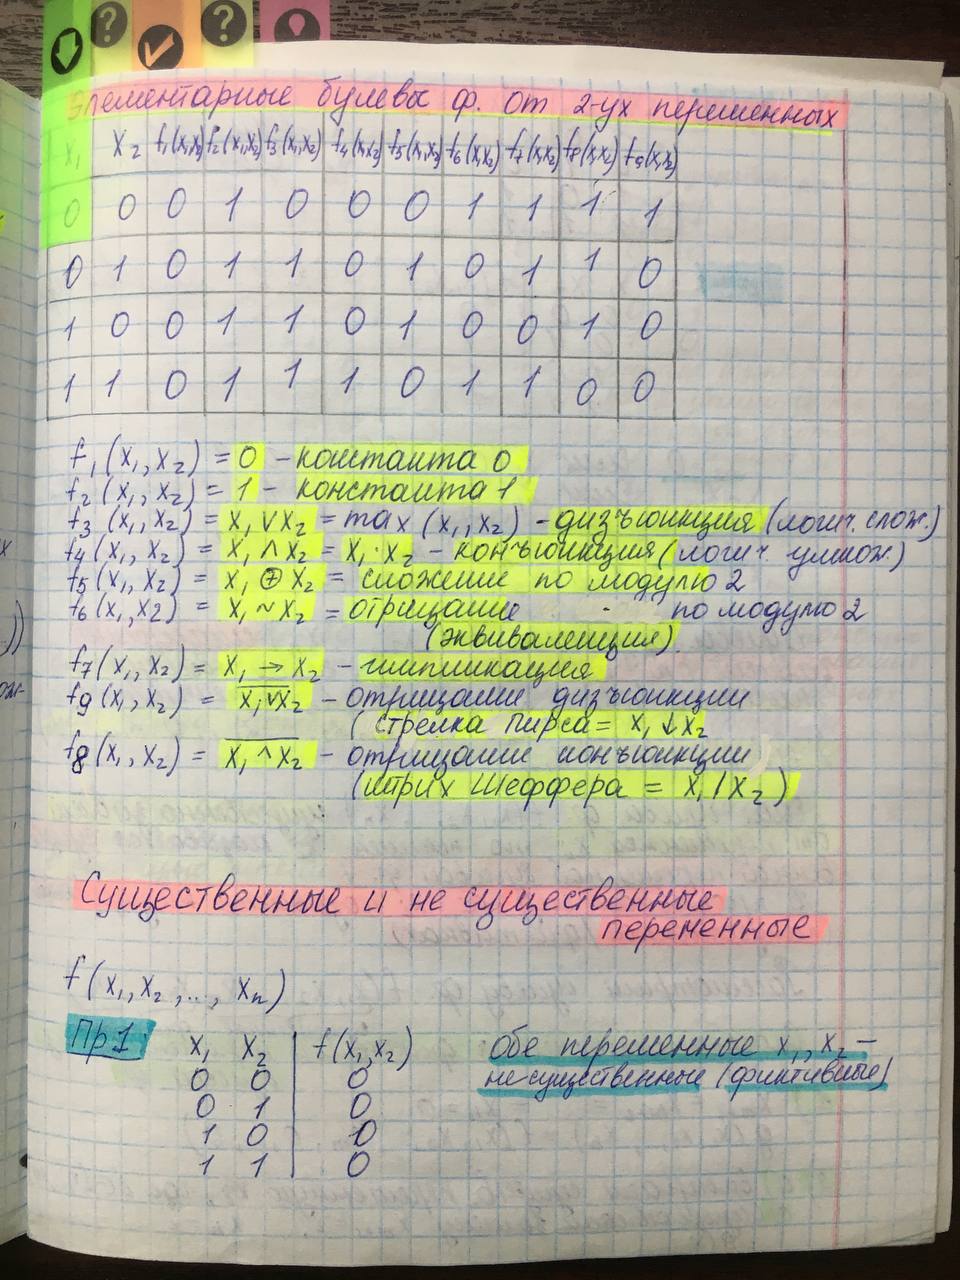 Элементарные булевы ф. от 2-ух переменных
x₁ x₂ f₁(x₁,x₂) f₂(x₁,x₂) f₃(x₁,x₂) f₄(x₁,x₂) f₅(x₁,x₂) f₆(x₁,x₂) f₇(x₁,x₂) f₈(x₁,x₂) f₉(x₁,x₂)
0 0 0 1 0 0 0 1 1 1 1
0 1 0 1 1 0 1 0 1 1 0
1 0 0 1 1 0 1 0 0 1 0
1 1 0 1 1 1 0 1 1 0 0
f₁(x₁, x₂) = 0 – константа 0
f₂(x₁, x₂) = 1 – константа 1
f₃(x₁, x₂) = x₁ ∨ x₂ = max(x₁, x₂) - дизъюнкция (логич. слож.)
f₄(x₁, x₂) = x₁ ∧ x₂ = x₁ · x₂ – конъюнкция (логич. умнож.)
f₅(x₁, x₂) = x₁ ⊕ x₂ = сложение по модулю 2
f₆(x₁, x₂) = x₁ ~ x₂ = отрицание по модулю 2
(эквиваленция).
f₇(x₁, x₂) = x₁ → x₂ – импликация
f₉(x₁, x₂) = \overline{x₁ ∨ x₂} – отрицание дизъюнкции
(стрелка Пирса = x₁ ↓ x₂
f₈(x₁, x₂) = \overline{x₁ ∧ x₂} – отрицание конъюнкции
(штрих Шеффера = x₁ / x₂)
Существенные и не существенные
переменные
f(x₁, x₂, .., xₙ)
Пр 1:
x₁ x₂ f(x₁, x₂) Обе переменные x₁, x₂ –
0 0 0 не существенные (фиктивные)
0 1 0
1 0 0
1 1 0